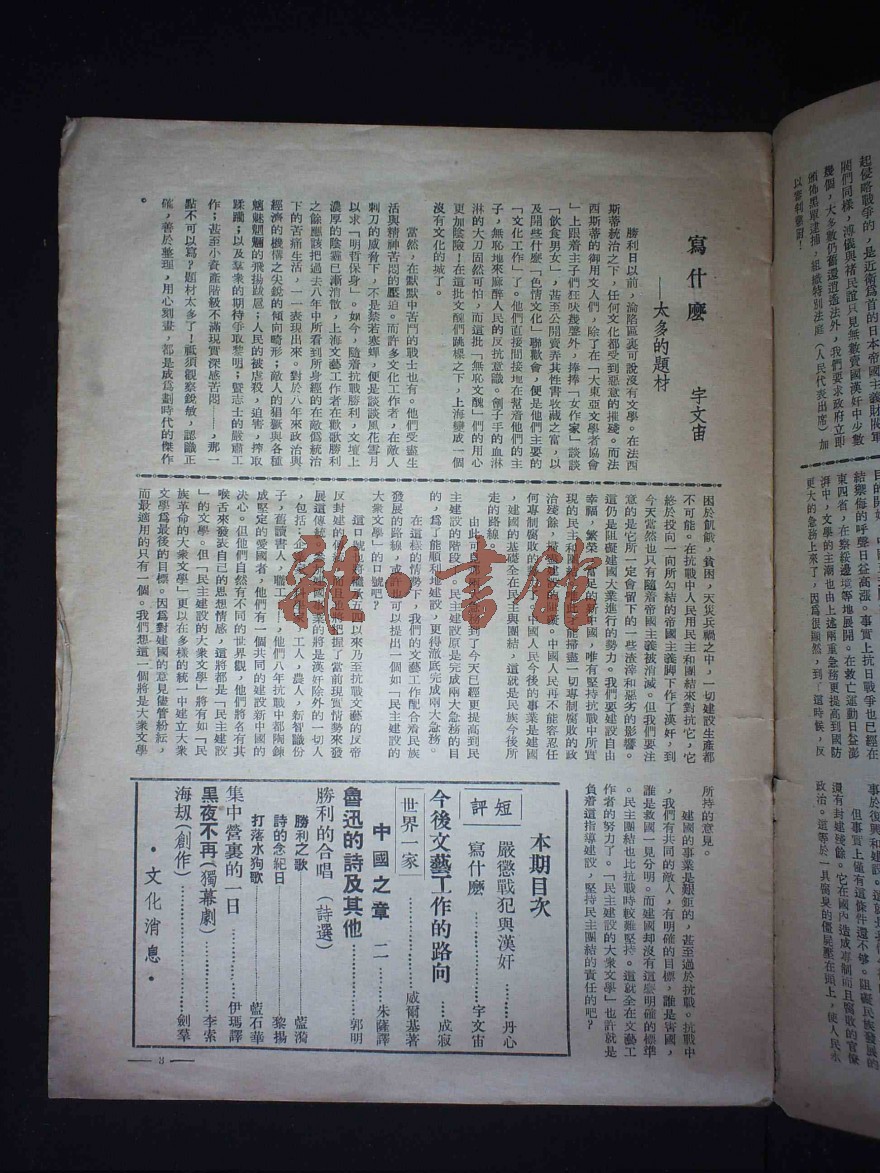 寫什麽
——太多的題材
宇文宙
勝利日以前，淪陷區裏可說沒有文學。在法西
斯蒂統治之下，任何文化都受到惡意的摧殘。而法
西斯蒂的御用文人們，除了在「大東亞文學者協會
」上跟着主子們狂吠幾聲外，捧捧「女作家」談談
「飲食男女」，甚至公開賣弄其性書收藏之富，以
及開些什麽「色情文化」聯歡會，便是他們主要的
「文化工作」了。他們直接間接地在幫着他們的主
子，無恥地來麻醉人民的反抗意識。劊子手的血淋
淋的大刀固然可怕，而這批「無恥文醜」們的用心
更加陰險！在這批文醜們跳樑之下，上海變成一個
沒有文化的城了。
當然，在默默中苦鬥的戰士也有。他們受盡生
活與精神苦悶的壓迫。而許多文化工作者，在敵人
刺刀的威脅下，不是禁若寒蟬，便是談談風花雪月
以求「明哲保身」。如今，隨着抗戰勝利，文壇上
濃厚的陰霾已漸消散，上海文藝工作者在歡歌勝利
之餘應該把過去八年中所看到所身經的在敵僞統治
下的苦痛生活，一一表現出來。對於八年來政治與
經濟的機構之尖銳的傾向畸形；敵人的猖獗與各種
魑魅魍魎的飛揚跋扈；人民的被虐殺，迫害，搾取
蹂躪；以及羣衆的期待爭取黎明；暨志士的嚴肅工
作；甚至小資產階級不滿現實深感苦悶……，那一
點不可以寫？題材太多了！祗須觀察銳敏，認識正
確，善於整理，用心刻畫，都是成爲劃時代的傑作
。
困於飢餓，貧困，天災兵禍之中，一切建設生產都
不可能。在抗戰中人民用民主和團結來對抗它，它
終於投向一向所勾結的帝國主義脚下作了漢奸，到
今天當然也只有隨着帝國主義被消滅。但我們要注
意的是它所一定會留下的一些渣滓和惡劣的影響。
這仍是阻礙建國大業進行的勢力。我們要建設自由
幸福，繁榮，富足的新中國，唯有堅持抗戰中所實
現的民主和團結，能掃盡一切專制腐敗的政
治殘餘，中國人民再不能容忍任
何專制腐敗的中國人民今後的事業是建國
，建國的基礎全在民主與團結，這就是民族今後所
走的路線。
由此可到了今天已經更提高到民
主建設的階段。民主建設原是完成兩大急務的目
的，爲了能順利地建設，更得澈底完成兩大急務。
在這樣的情勢下，我們的文藝工作配合着民族
發展的路線，或許也可以提出一個如「民主建設的
大衆文學」的口號吧？
這口號也將繼承五四以來乃至抗戰文藝的反帝
反封建的傳統而且也將把握了當前現實情勢來發
展這傳統。建國事業的將是漢奸除外的一切人
，包括：企工人，農人，新智識份
子，舊讀書人，職工——，他們八年抗戰中都陶鍊
成堅定的愛國者，他們有一個共同的建設新中國的
決心。但他們自然有不同的世界觀，他們將各有其
喉舌來發表自己的思想情感，這將都是「民主建設
」的文學。但「民主建設的大衆文學」將有如「民
族革命的大衆文學」更以在多樣的統一中建立大衆
文學爲最後的目標。因爲對建國的意見儘管紛紜，
而最適用的只有一個。我們想這一個將是大衆文學
所持的意見。
建國的事業是艱鉅的，甚至過於抗戰。抗戰中
，我們有共同的敵人，有明確的目標，誰是害國，
誰是救國一見分明。而建國却沒有這麽明確的標準
。民主團結也比抗戰時較難堅持。這就全在文藝工
作者的努力了。「民主建設的大衆文學」也許就是
負着這指導建設，堅持民主團結的責任的吧？
本期目次
短評
嚴懲戰犯與漢奸……丹心
寫什麽…………宇文宙
今後文藝工作的路向……成寂
世界一家…………威爾基著
中國之章 二……朱薩譯
魯迅的詩及其他…………郭明
勝利的合唱（詩選）
勝利之歌……藍漪
詩的念紀日……黎揚
打落水狗歌……藍石華
集中營裏的一日…………伊瑪譯
黑夜不再（獨幕劇）……李索
海刼（創作）…………劍羣
·文化消息·
—3—
起侵略戰爭的，是近衛爲首的日本帝國主義財閥軍
閥們同樣，溥儀與褚民誼只見無數賣國漢奸中少數
幾個，大多數仍舊逍遙法外，我們要求政府立即
頒佈黑單逮捕，組織特別法庭（人民代表出席）加
以審判懲罰！
結禦侮的呼聲日益高漲。事實上抗日戰爭也已經在
東四省，在察綏邊境等地展開。在救亡運動日益澎
湃中，文學的主潮也由上述兩重急務更提高到國防
更大的急務上來了，因爲很顯然，到了這時候，反
事於復興和建設。
但事實上僅有這條件還不够。阻礙民族發展的
還有封建殘餘。它在國內造成專制而且腐敗的官僚
政治。這等於一具腐臭的僵屍壓在頭上，使人民永
雜·書館